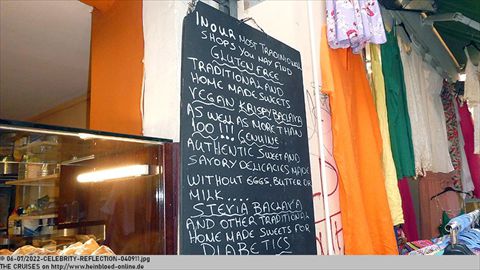 IN OUR MOST TRADITIONAL
SHOPS YOU MAY FIND
GLUTEN FREE
TRADITIONAL AND
HOME MADE SWEETS
VEGAN KRISPY BACLAVA
AS WELL AS MORE THAN
100!!! GENUINE
AUTHENTIC SWEET AND
SAVORY DELICACIES MADE
WITHOUT EGGS, BUTTER OR
MILK....
STEVIA BACLAVA
AND OTHER TRADITIONAL
HOME MADE SWEETS FOR
DIABETICS
© 06-07/2022-CELEBRITY-REFLECTION-040911.jpg
THE CRUISES on http://www.heinbloed-online.de